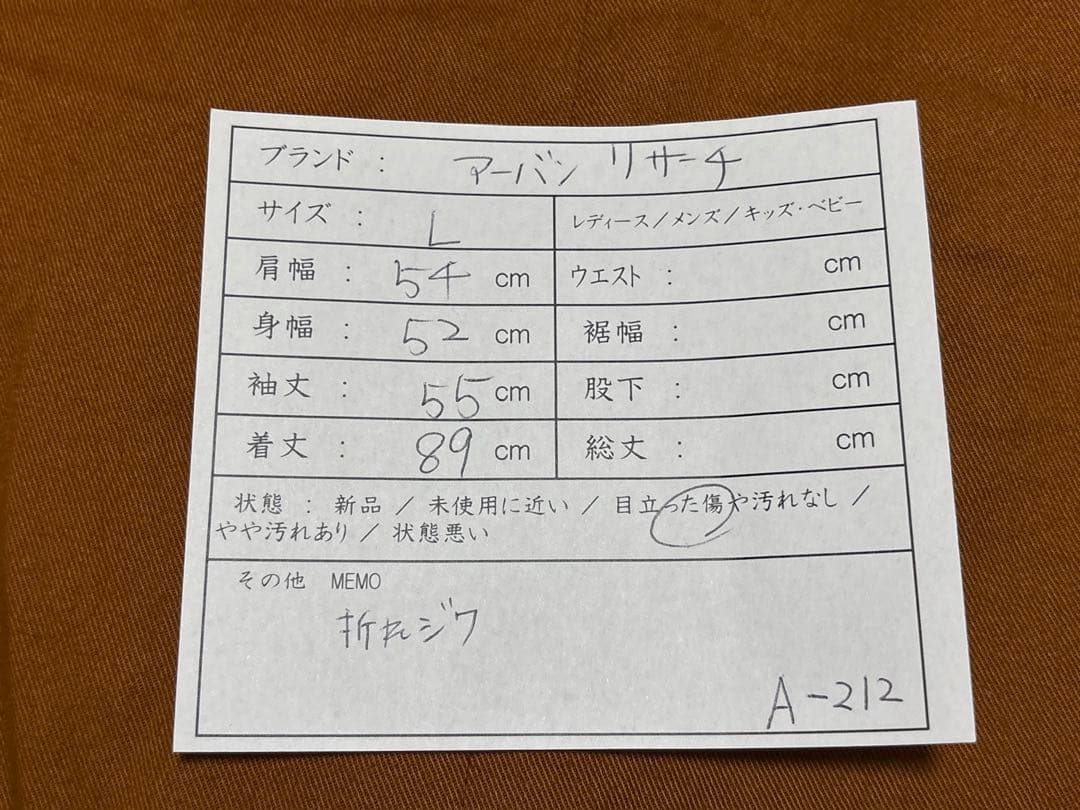 ブランド : アーバン リサーチ
サイズ : L レディース/メンズ/キッズ・ベビー
肩幅 : 54 cm ウエスト : cm
身幅 : 52 cm 裾幅 : cm
袖丈 : 55 cm 股下 : cm
着丈 : 89 cm 総丈 : cm
状態 : 新品 / 未使用に近い / 目立った傷や汚れなし /
やや汚れあり / 状態悪い
その他 MEMO
折れジワ
A-212